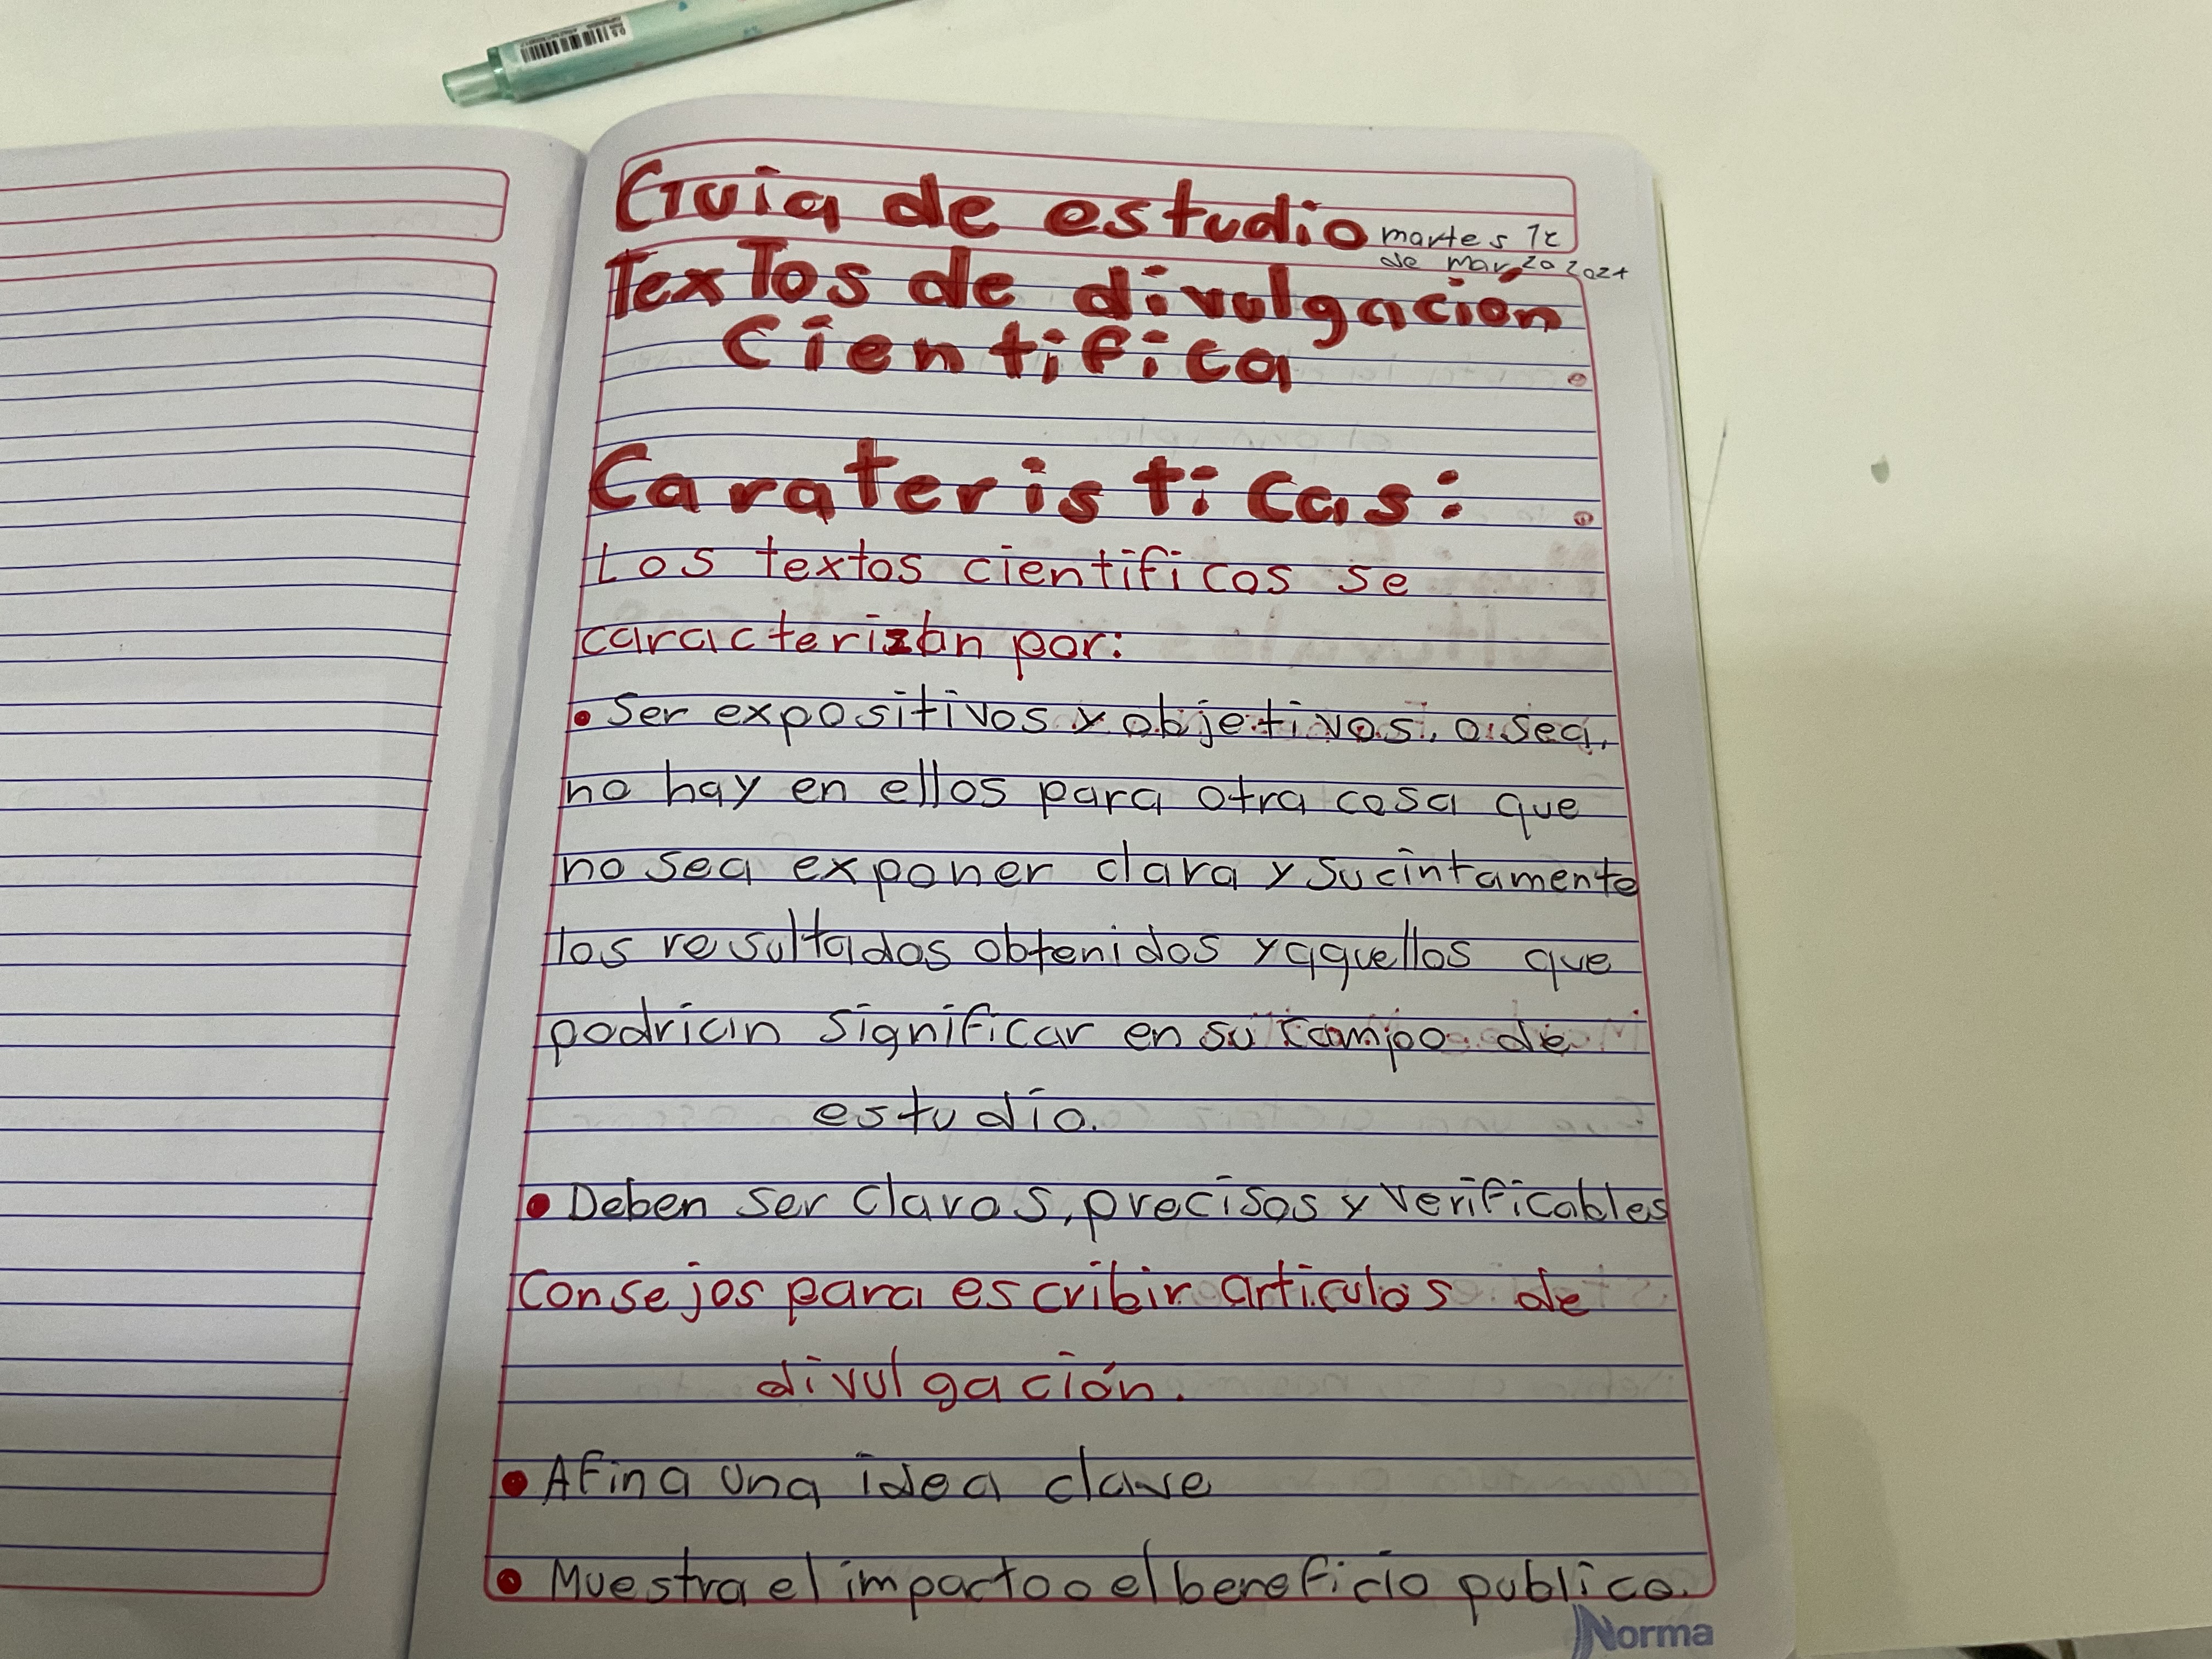 Guia de estudio
martes 12
de marzo 2024
Textos de divulgación
Cientifica
Carateristicas:
Los textos cientificos se
caracterizan por:
• Ser expositivos y objetivos, o sea,
no hay en ellos para otra cosa que
no sea exponer clara y sucintamente
los resultados obtenidos y aquellos que
podrian significar en su campo de
estudio.
• Deben ser claros, precisos y verificables
Consejos para escribir articulos de
divulgación.
• Afina una idea clave
• Muestra el impacto o el beneficio publico.
Norma